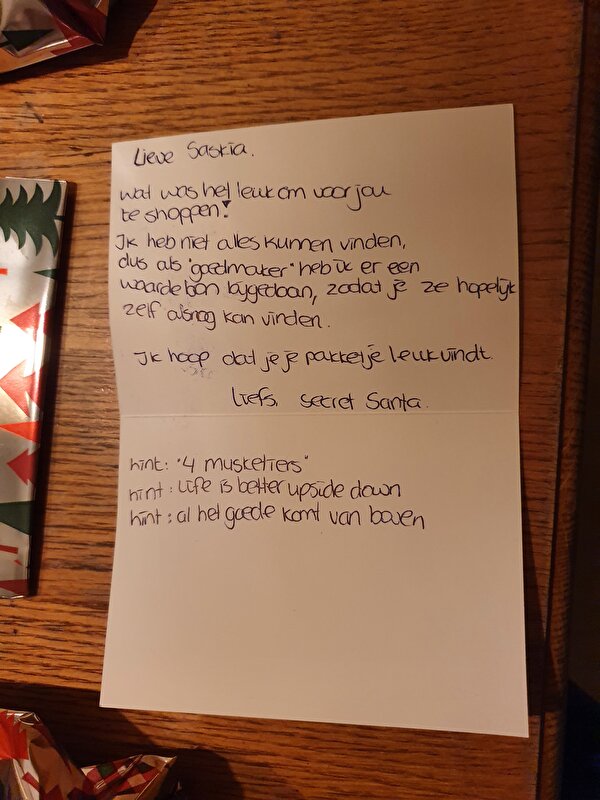 Lieve Saskia.
wat was het leuk om voor jou
te shoppen!
Ik heb niet alles kunnen vinden,
dus als "goedmaker" heb ik er een
waardebon bijgedaan, zodat je ze hopelijk
zelf alsnog kan vinden.
Ik hoop dat je je pakketje leuk vindt.
Liefs, secret Santa.
hint: "4 musketiers"
hint: Life is better upside down
hint: al het goede komt van boven